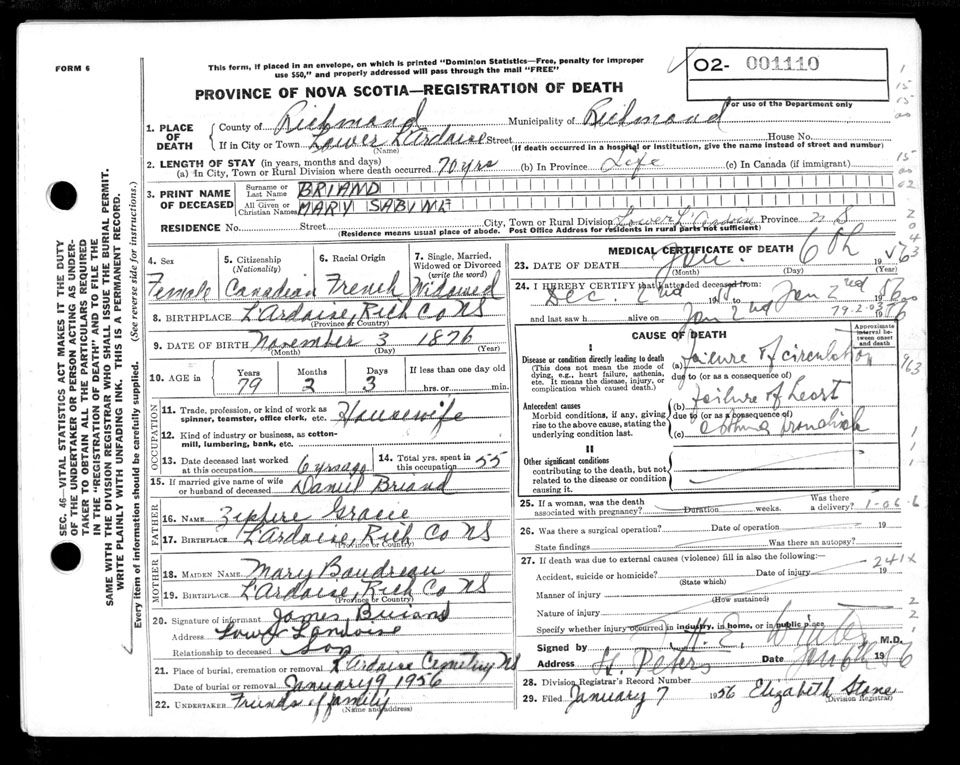 FORM 6
This form, if placed in an envelope, on which is printed "Dominion Statistics—Free, penalty for improper
use $50," and properly addressed will pass through the mail "FREE"
02- 001110
For use of the Department only
PROVINCE OF NOVA SCOTIA—REGISTRATION OF DEATH
1. PLACE OF DEATH
County of Richmond Municipality of Richmond
If in City or Town Lower L'Ardoise Street House No.
(Name) (If death occurred in a hospital or institution, give the name instead of street and number)
2. LENGTH OF STAY (in years, months and days)
(a) In City, Town or Rural Division where death occurred 70 yrs (b) In Province Life (c) In Canada (if immigrant)
3. PRINT NAME OF DECEASED
Surname or Last Name BRIAND
All Given or Christian Names MARY SABINE
RESIDENCE No. Street City, Town or Rural Division Lower L'Ardoise Province N S
(Residence means usual place of abode. Post Office Address for residents in rural parts not sufficient)
4. Sex
Female
5. Citizenship
(Nationality)
Canadian
6. Racial Origin
French
7. Single, Married,
Widowed or Divorced
(write the word)
Widowed
8. BIRTHPLACE L'Ardoise, Rich Co NS
(Province or Country)
9. DATE OF BIRTH November 3 1876
(Month) (Day) (Year)
10. AGE in
Years Months Days If less than one day old
79 2 3 hrs. or min.
OCCUPATION
11. Trade, profession, or kind of work as
spinner, teamster, office clerk, etc. Housewife
12. Kind of industry or business, as cotton-
mill, lumbering, bank, etc.
13. Date deceased last worked
at this occupation 6 yrs ago
14. Total yrs. spent in
this occupation 55
15. If married give name of wife
or husband of deceased Daniel Briand
FATHER
16. NAME Zippire Gracie
17. BIRTHPLACE L'Ardoise, Rich Co NS
(Province or Country)
MOTHER
18. MAIDEN NAME Mary Boudreau
19. BIRTHPLACE L'Ardoise, Rich Co NS
(Province or Country)
20. Signature of informant James Briand
Address Lower Lardoise
Relationship to deceased Son
21. Place of burial, cremation or removal L'Ardoise Cemetery NS
Date of burial or removal January 9, 1956
22. UNDERTAKER Friends of family
(Name and address)
MEDICAL CERTIFICATE OF DEATH
23. DATE OF DEATH Jan. 6th 1956
(Month) (Day) (Year)
24. I HEREBY CERTIFY that I attended deceased from:
Dec. 2nd 19 to Jan 2nd 1956
and last saw h alive on Jan 2nd 1956
79-2-03
CAUSE OF DEATH
Approximate
interval between
onset and
death
I
Disease or condition directly leading to death
(This does not mean the mode of
dying, e.g., heart failure, asthenia,
etc. It means the disease, injury, or
complication which caused death.)
(a) failure of circulation
due to (or as a consequence of)
Antecedent causes
Morbid conditions, if any, giving
rise to the above cause, stating the
underlying condition last.
(b) failure of heart
due to (or as a consequence of)
(c)
II
Other significant conditions
contributing to the death, but not
related to the disease or condition
causing it.
25. If a woman, was the death
associated with pregnancy? Duration weeks. Was there a delivery?
26. Was there a surgical operation? Date of operation 19
State findings Was there an autopsy?
27. If death was due to external causes (violence) fill in also the following:—
Accident, suicide or homicide? Date of injury 19
(State which)
241X
Manner of injury
(How sustained)
Nature of injury
Specify whether injury occurred in industry, in home, or in public place
Signed by M.D.
Address St. Peters Date Jan 6th 1956
28. Division Registrar's Record Number
29. Filed January 7 1956 Elizabeth Stone
(Division Registrar)
SEC. 46—VITAL STATISTICS ACT MAKES IT THE DUTY
OF THE UNDERTAKER OR PERSON ACTING AS UNDER-
TAKER TO OBTAIN ALL THE PARTICULARS REQUIRED
IN THE "REGISTRATION OF DEATH" AND TO FILE THE
SAME WITH THE DIVISION REGISTRAR WHO SHALL ISSUE THE BURIAL PERMIT.
WRITE PLAINLY WITH UNFADING INK. THIS IS A PERMANENT RECORD.
Every item of information should be carefully supplied. (See reverse side for instructions.)